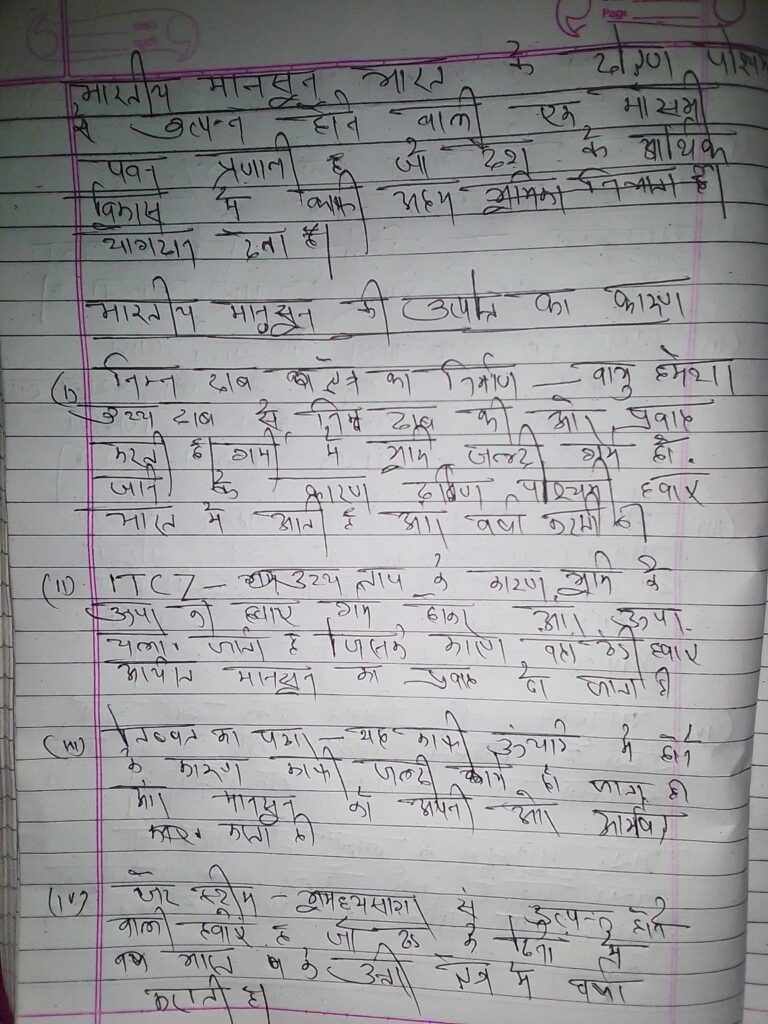 Page
भारतीय मानसून भारत के दक्षिण पश्चिम
से उत्पन्न होने वाली एक मौसमी
पवन प्रणाली है जो देश के आर्थिक
विकास में काफी अहम भूमिका निभाता है।
योगदान देता है।
भारतीय मानसून की उत्पत्ति का कारण
(i) निम्न दाब क्षेत्र का निर्माण — वायु हमेशा
उच्च दाब से निम्न दाब की ओर प्रवाह
करती है। गर्मी में भूमि जल्दी गर्म हो
जाने के कारण दक्षिण पश्चिमी हवाएं
भारत में आती है और वर्षा करती है।
(ii) ITCZ – उच्च ताप के कारण भूमि के
ऊपर की हवाएं गर्म होकर और ऊपर
चला जाता है जिसके कारण वहां ठंडी हवाएं
मानसून का प्रवाह हो जाता है।
(iii) तिब्बत का पठार – यह काफी ऊंचाई में होने
के कारण काफी जल्दी गर्म हो जाता है
और मानसून को अपनी ओर आकर्षित
करता है।
(iv) जेट स्ट्रीम – भूमध्यसागर से उत्पन्न होने
वाली हवाएं है जो ठंड के दिनों में
भारत के उत्तरी क्षेत्र में वर्षा
कराती है।